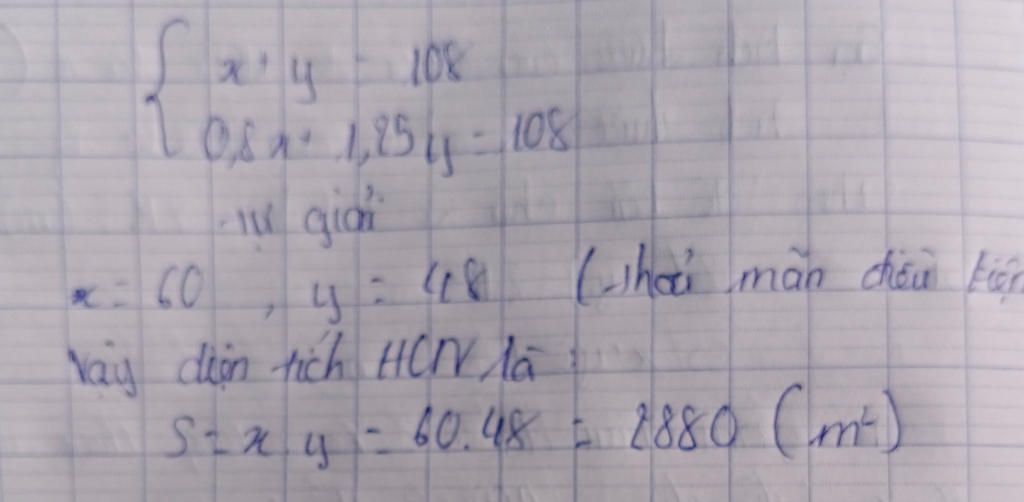 x + y = 108
0,8x + 1,25y = 108
Tự giải
x = 60, y = 48 (thoả mãn điều kiện
Vậy diện tích HCN là:
S = x y = 60.48 = 2880 (m²)